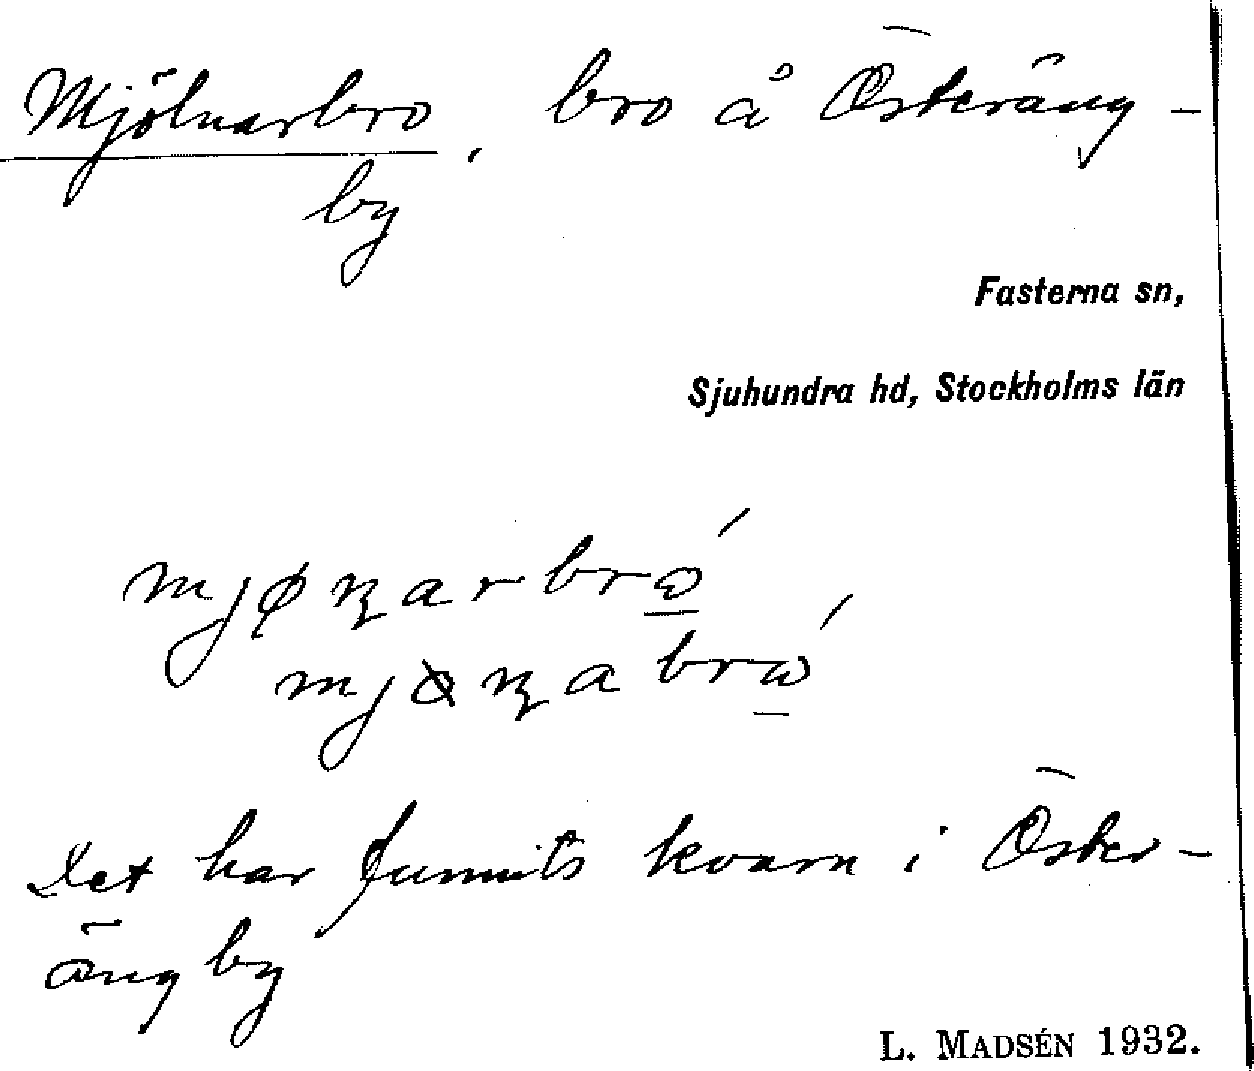 Mjölnarbro, bro å Österäng-
by
Fasterna sn,
Sjuhundra hd, Stockholms län
mjøɳarbrώ̲
mjɵɳabrώ̲
Det har funnits kvarn i Öster-
ängby
L. MADSÉN 1932.